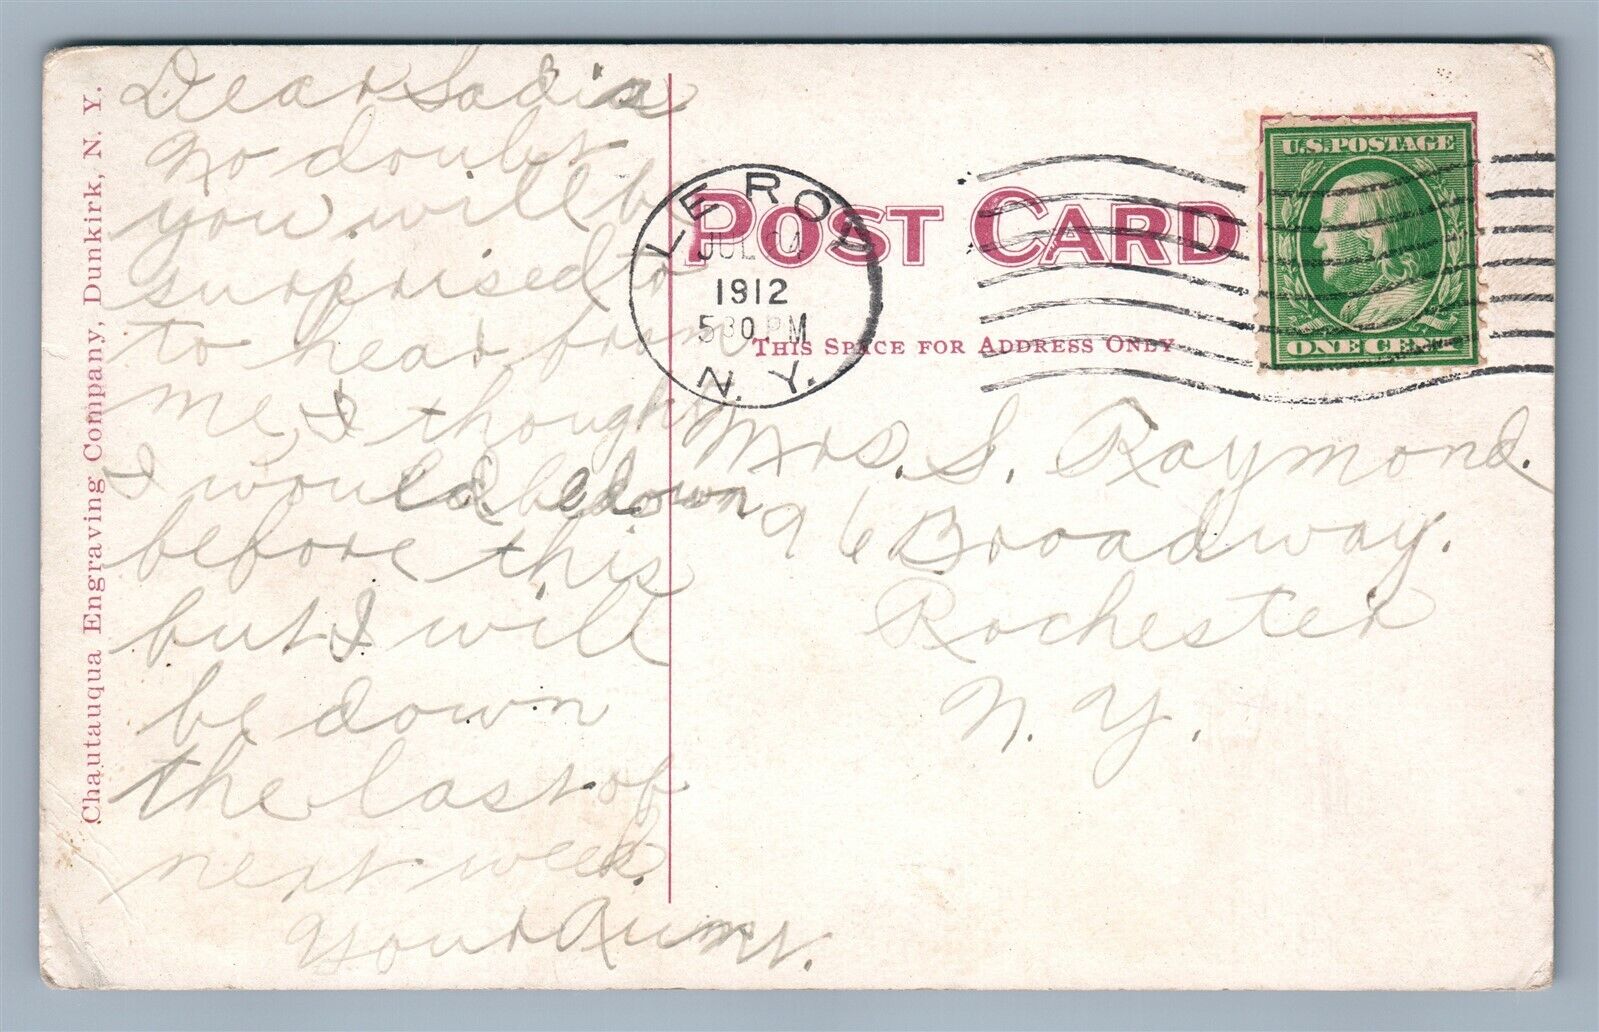 Chautauqua Engraving Company, Dunkirk, N. Y.
Dear Sadie
No doubt
you will be
surprised to
to hear from
me, I thought
I would be down
before this
but I will
be down
the last of
next week.
Your Aunt.
LE ROY
JUL 24
1912
530 PM
N. Y.
POST CARD
THIS SPACE FOR ADDRESS ONLY
U.S. POSTAGE
ONE CENT
Mrs. S. Raymond.
96 Broadway.
Rochester
N. Y.